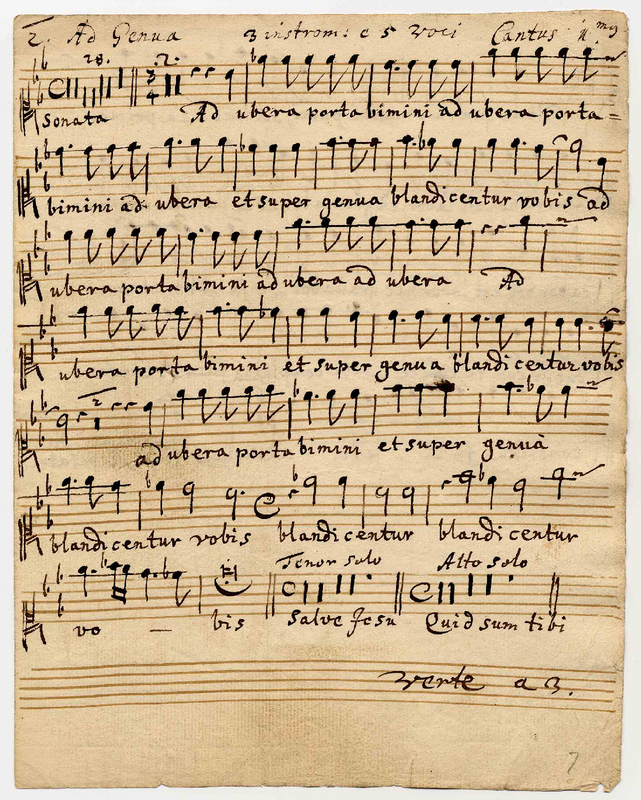 2. Ad Genua 3 instrom: e 5 Voci Cantus
28. 2.
Sonata Ad ubera portabimini ad ubera porta=
bimini ad ubera et super genua blandicentur vobis ad
ubera portabimini ad ubera ad ubera Ad
ubera portabimini et super genua blandicentur vobis
2
ad ubera portabimini et super genua
blandicentur vobis blandicentur blandicentur
Tenor solo Alto solo
vo — bis Salve Jesu Quid sum tibi
verte a 3.
7